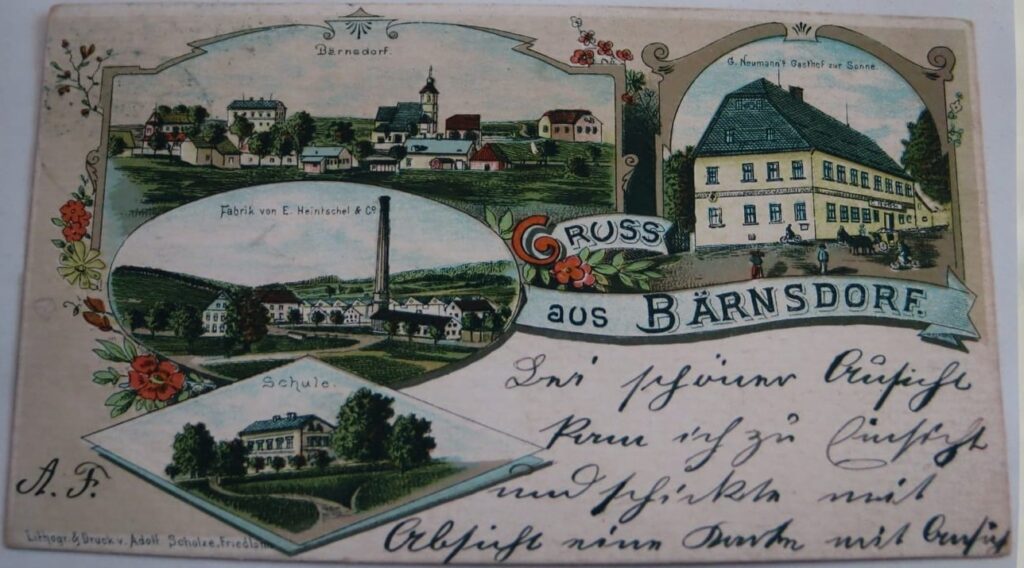 Bärnsdorf.
G. Neumann's Gasthof zur Sonne
Fabrik von E. Heintschel & Co
GRUSS
aus BÄRNSDORF.
Schule.
Bei schöner Aussicht
kam ich zu Einsicht
und schickte mit
Absicht eine Karte mit Ansich
A. F.
Lithogr. & Druck v. Adolf Schulze, Friedland